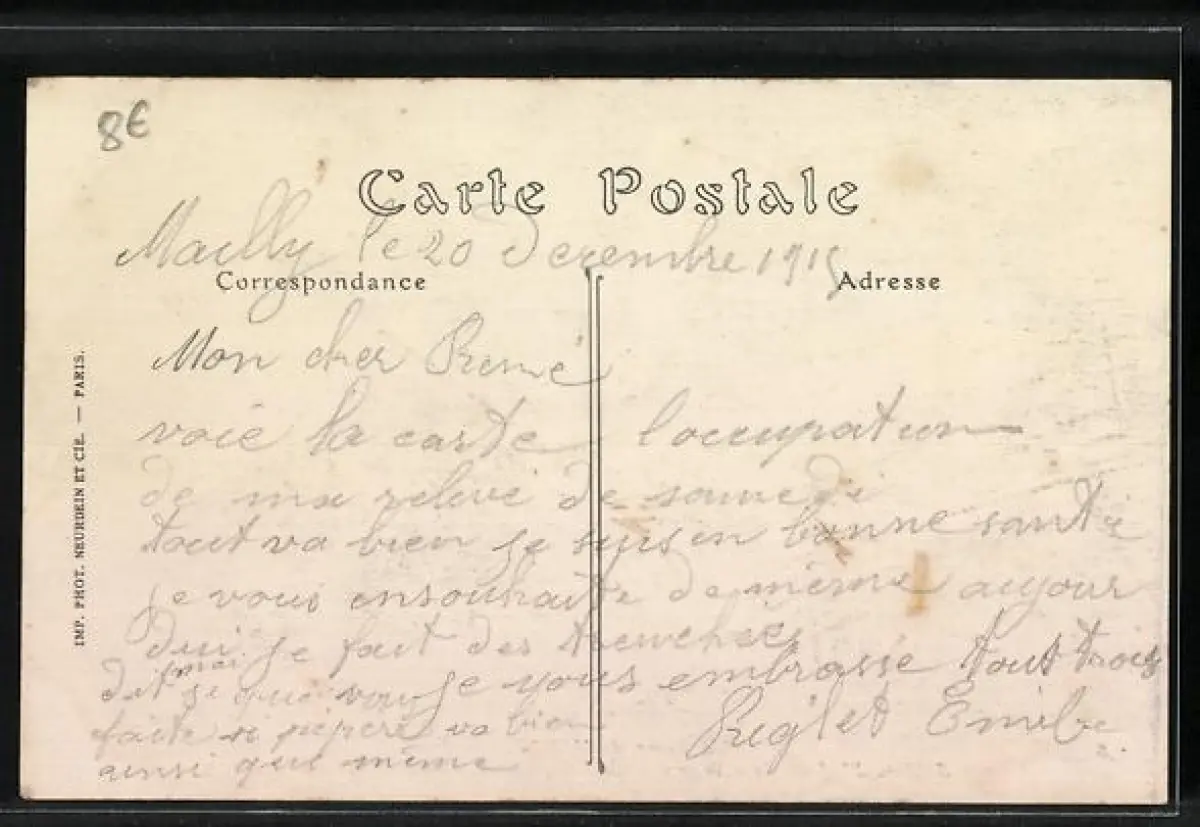 8€
Carte Postale
Mailly le 20 Decembre 1915
Correspondance
Adresse
Mon cher René
voie la carte l'occupation
de ma relève de samedi
tout va bien je suis en bonne santé
je vous ensouhaite de même aujour
dui je fait des trenchées
dit moi se que vous
je vous embrasse tout trois
faite si pépère va bien
ainsi que même
Emile
IMP. PHOT. NEURDEIN ET CIE. — PARIS.